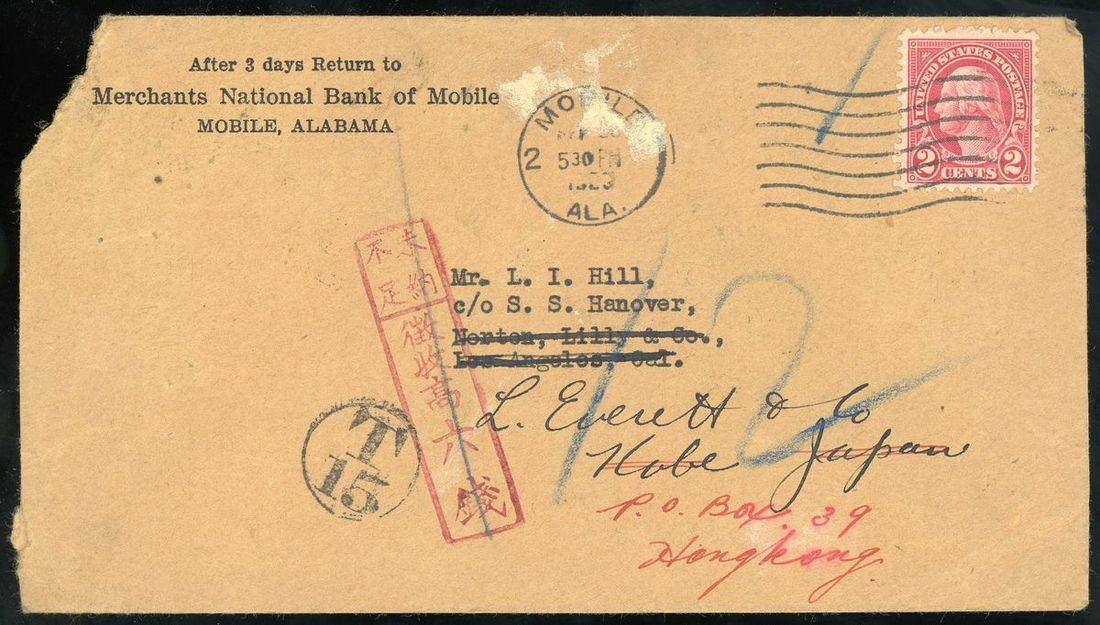 After 3 days Return to
Merchants National Bank of Mobile
MOBILE, ALABAMA
MOBILE
2
530 PM
ALA.
UNITED STATES POSTAGE
2 CENTS 2
未納
不足
徴收高
六
錢
T
15
12
Mr. L. I. Hill,
c/o S. S. Hanover,
Norton, Lilly & Co.,
Los Angeles, Cal.
L. Everett & Co
Kobe Japan
P.O. Box. 39
Hongkong.